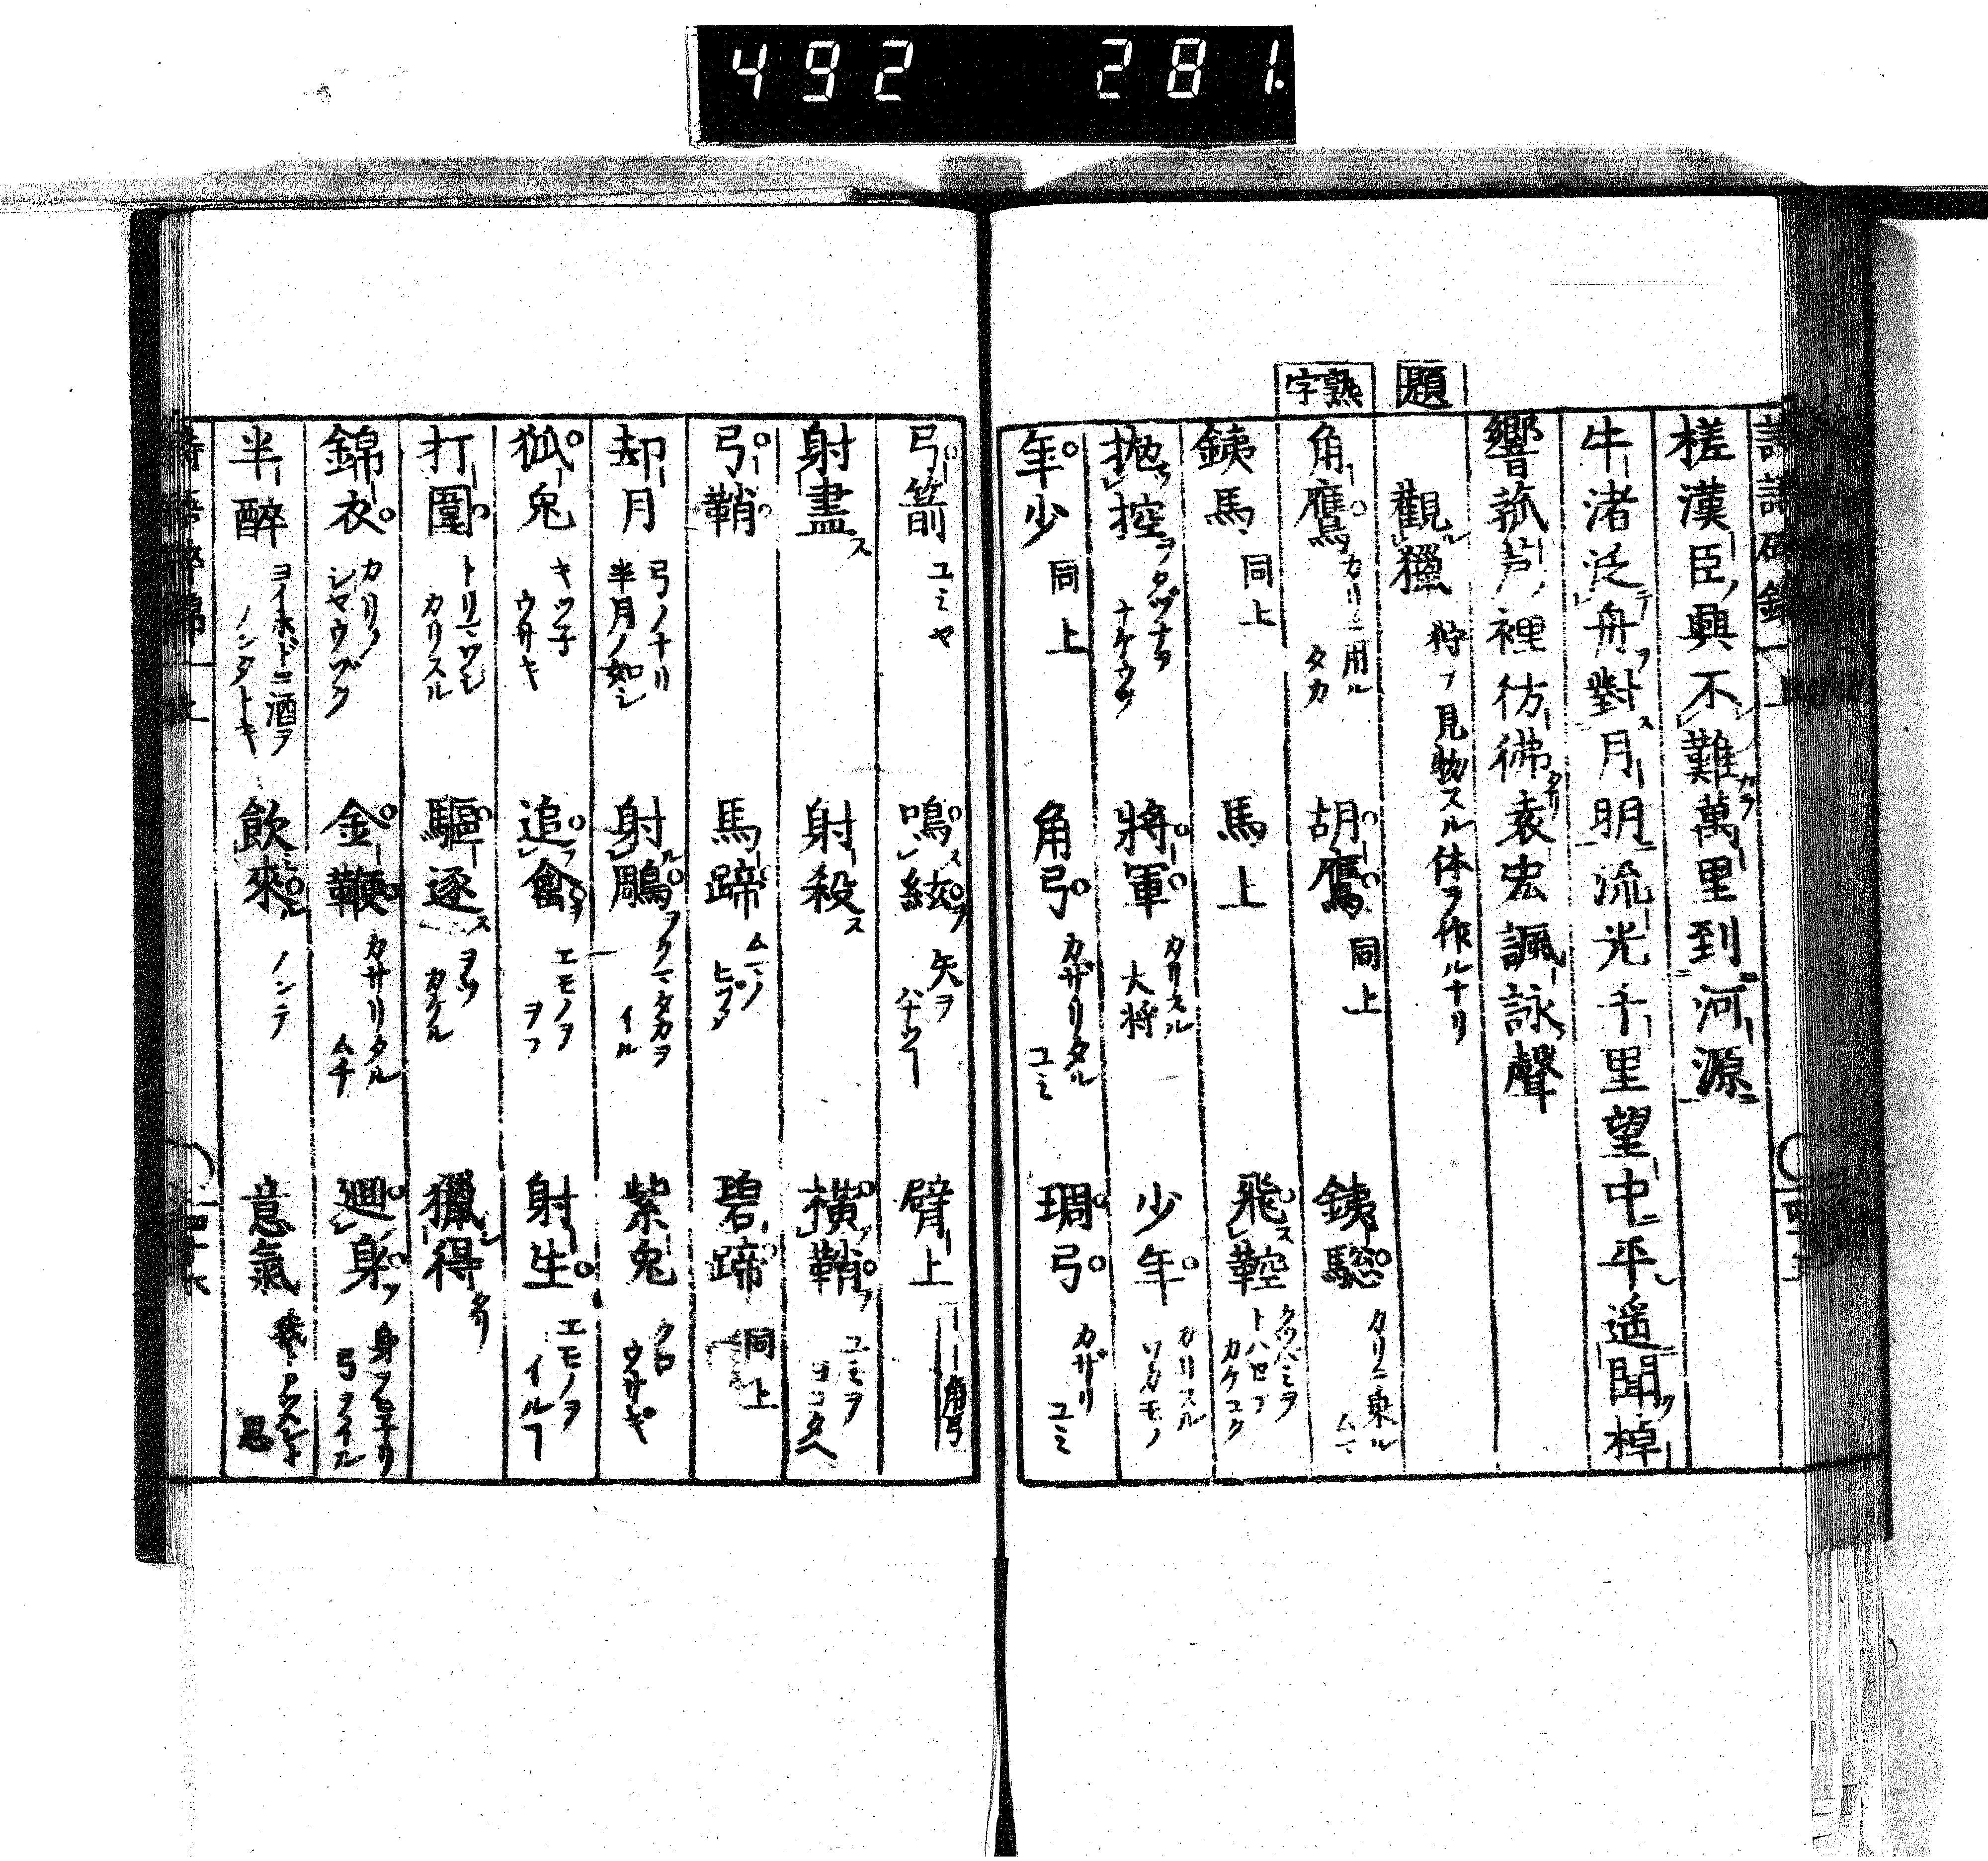 492 281.
槎漢臣興不難萬里到河源
牛渚泛舟對月明流光千里望中平遥聞棹
響菰芦裡彷彿袁宏諷詠聲
題
觀獵 狩ヲ見物スル体ヲ作ルナリ
熟字
角鷹 カリニ用ルタカ 胡鷹 同上 銕驄 カリニ乗ルムマ
銕馬 同上 馬上 飛鞚 クツバミヲトハセテカケユク
抛控 タヅナヲナケウツ 將軍 カリスル大将 少年 カリスルワカモノ
年少 同上 角弓 カザリタルユミ 琱弓 カザリユミ
弓箭 ユミヤ 鳴絃 矢ヲハナツヿ 臂上 ーー角弓
射盡 射殺 横鞘 ユミヲヨコタヘ
弓鞘 馬蹄 ムマノヒヅメ 碧蹄 同上
却月 弓ノナリ半月ノ如シ 射鵰 クマタカヲイル 紫兔 クロウサギ
狐兔 キツ子ウサキ 追禽 エモノヲヲフ 射生 エモノヲイルヿ
打圍 トリマワシカリスル 驅逐 ヲツカケル 獵得
錦衣 カリノシヤウゾク 金鞭 カサリタルムチ 廻身 身ヲ子チリ弓ヲイル
半醉 ヨイホドニ酒ヲノンタトキ 飲來 ノンテ 意氣